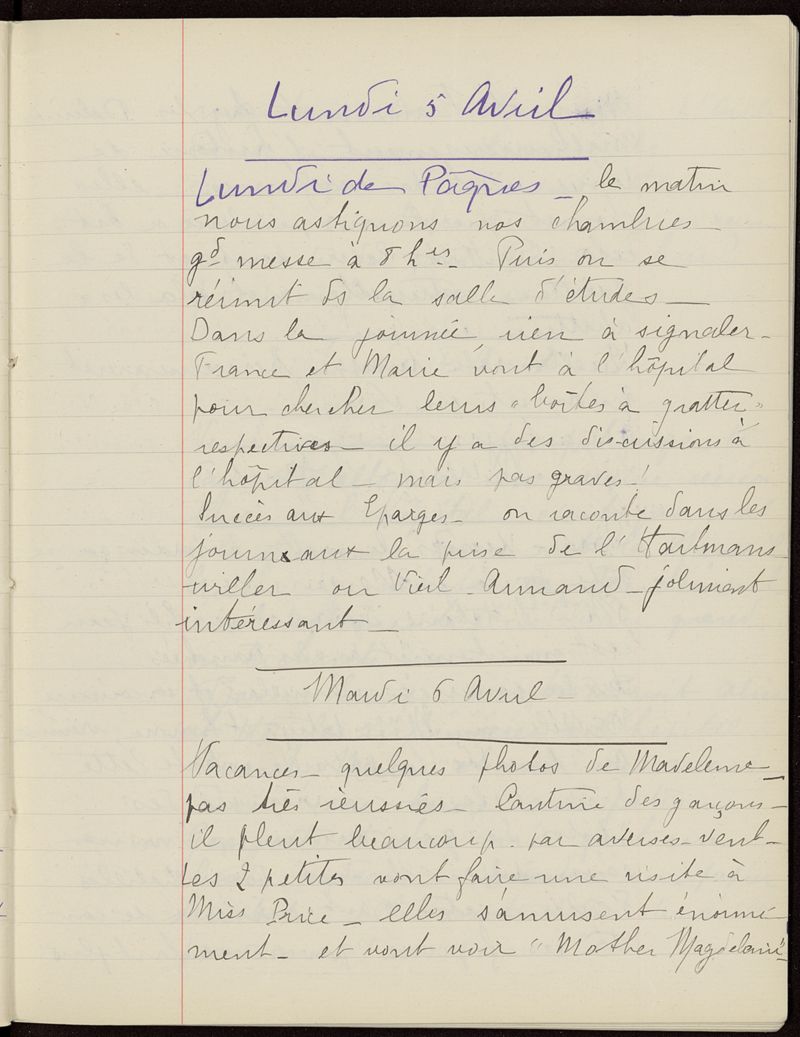 Lundi 5 Avril
Lundi de Pâques _ le matin
nous astiquons nos chambres _
gd messe à 8 hes _ Puis on se
réunit ds la salle d'études _
Dans la journée, rien à signaler _
France et Marie vont à l'hôpital
pour chercher leurs "boîtes à gratter"
respectives _ il y a des discussions à
l'hôpital _ mais pas graves !
Succès aux Eparges _ on raconte dans les
journaux la prise de l'Hartmans
willer ou Vieil-Armand _ joliment
intéressant _
Mardi 6 Avril
Vacances _ quelques photos de Madeleine _
pas très réussies _ Cantine des garçons _
il pleut beaucoup. par averses _ vent _
Les 2 petites vont faire une visite à
Miss Price _ elles s'amusent énormé
ment _ et vont voir "Mother Magdelani"